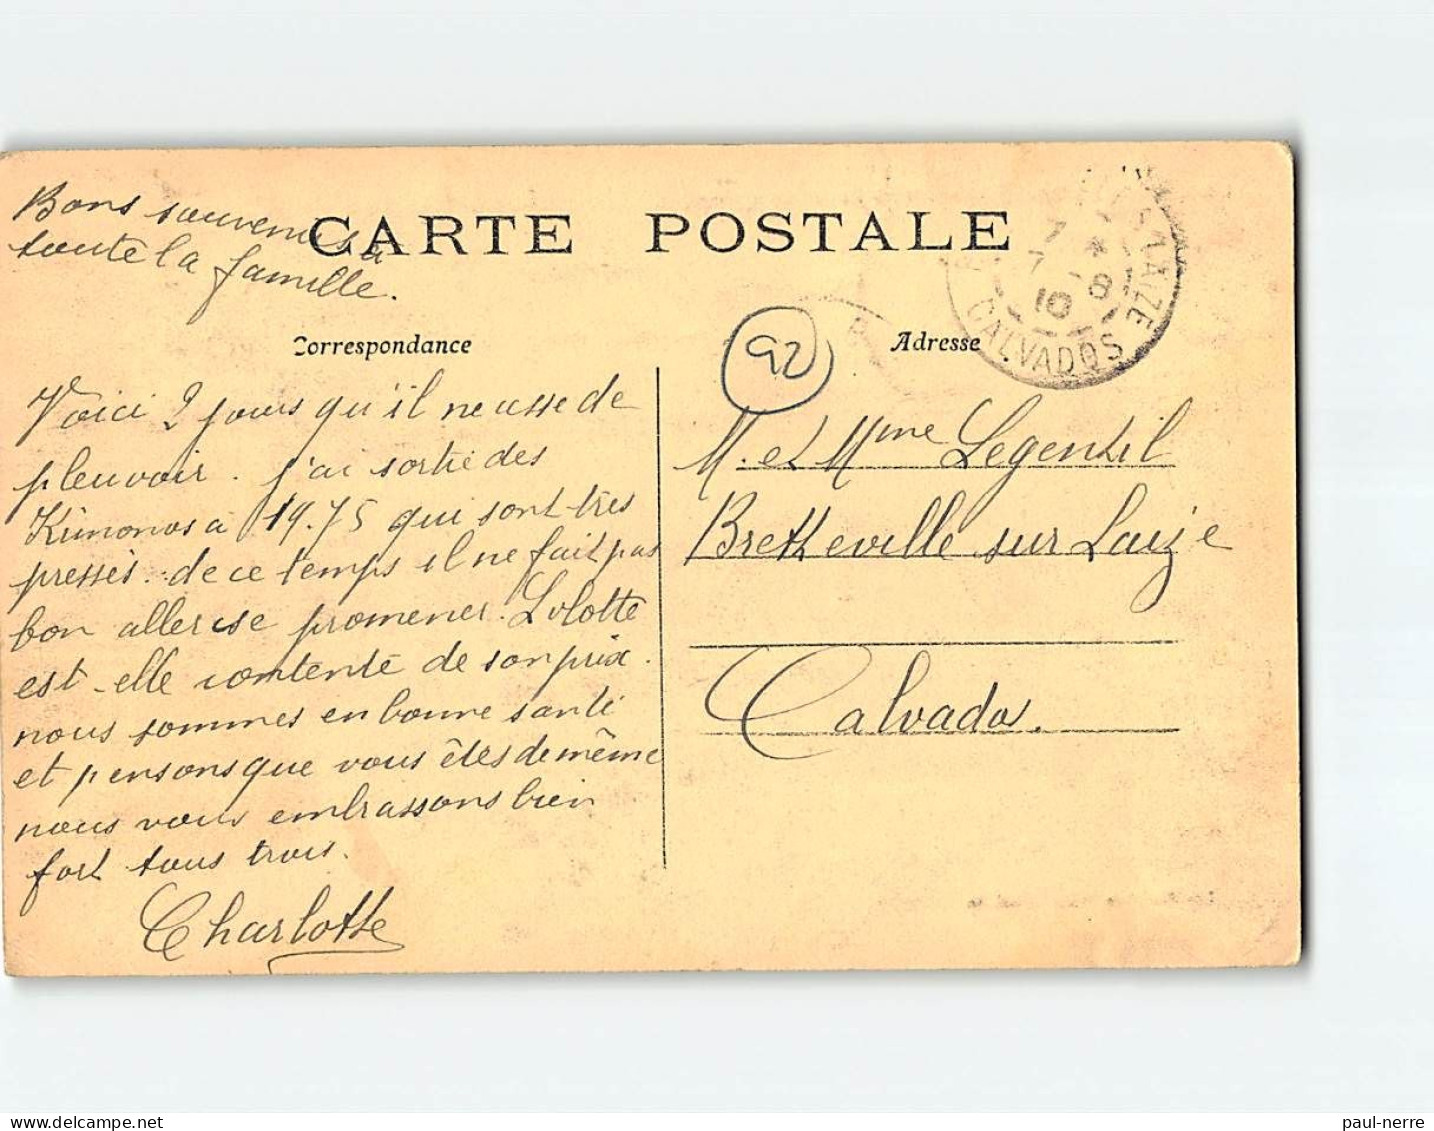 Bons souvenirs à
toute la famille.
CARTE POSTALE
Correspondance
Adresse
92
LAIZE
CALVADOS
7 *
7 - 8
10
Voici 2 jours qu'il ne cesse de
pleuvoir. j'ai sortie des
Kimonos à 19.75 qui sont très
pressés. de ce temps il ne fait pas
bon aller se promener. Lolotte
est-elle contente de son prix.
nous sommes en bonne santé
et pensons que vous êtes de même
nous vous embrassons bien
fort tous trois.
Charlotte
M. et Mme Legentil
Bretteville sur Laize
Calvados.
paul-nerre